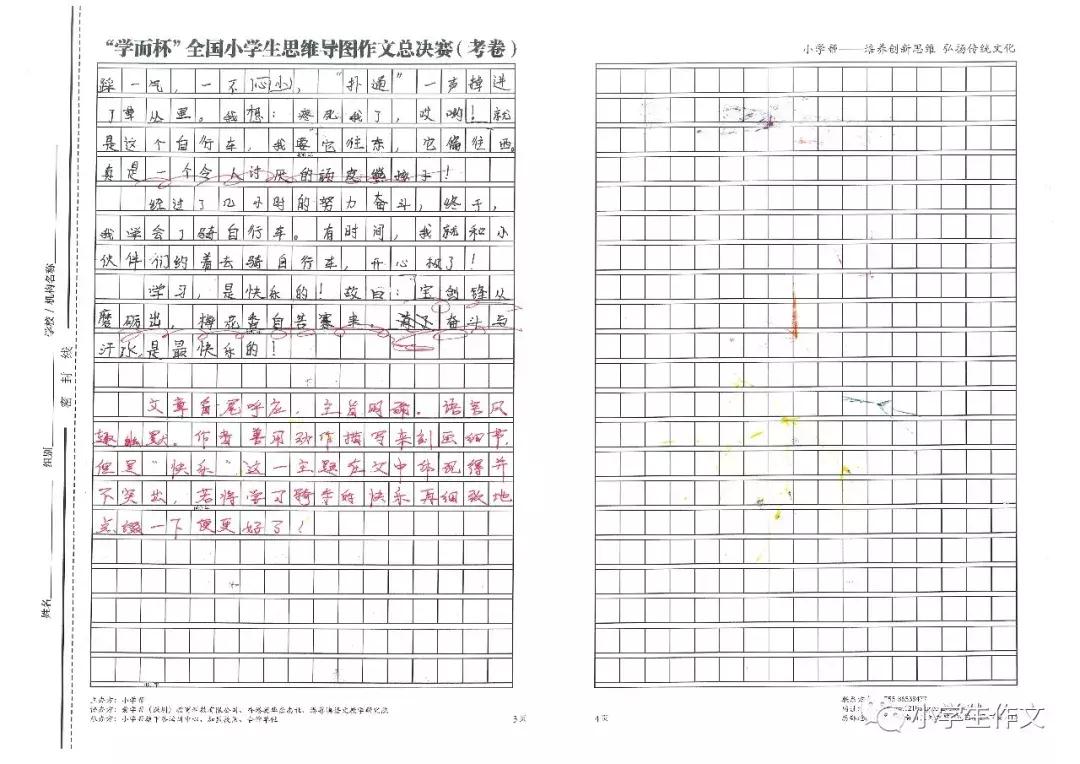 “学而杯”全国小学生思维导图作文总决赛(考卷)
小学帮——培养创新思维 弘扬传统文化
踩一气，一不小心，“扑通”一声掉进
了草丛里。我想：疼死我了，哎哟！就
是这个自行车，我要它往东，它偏往西。
真是一个令人讨厌的
经过了几小时的努力奋斗，终于，
我学会了骑自行车。有时间，我就和小
伙伴们约着去骑自行车，开心极了！
学习，是快乐的！故曰：宝剑锋从
磨砺出，梅花香自苦寒来。奋斗与
汗水是最快乐的！
文章首尾呼应，主旨明确。语言风
趣幽默。作者善用动作描写来刻画细节，
但是“快乐”这一主题在文中体现得并
不突出，若将学习骑车的快乐再细致地
点缀一下便更好了！
学校/机构名称
组别
姓名
密封线
主办方：小学帮
3页
4页
小学生作文